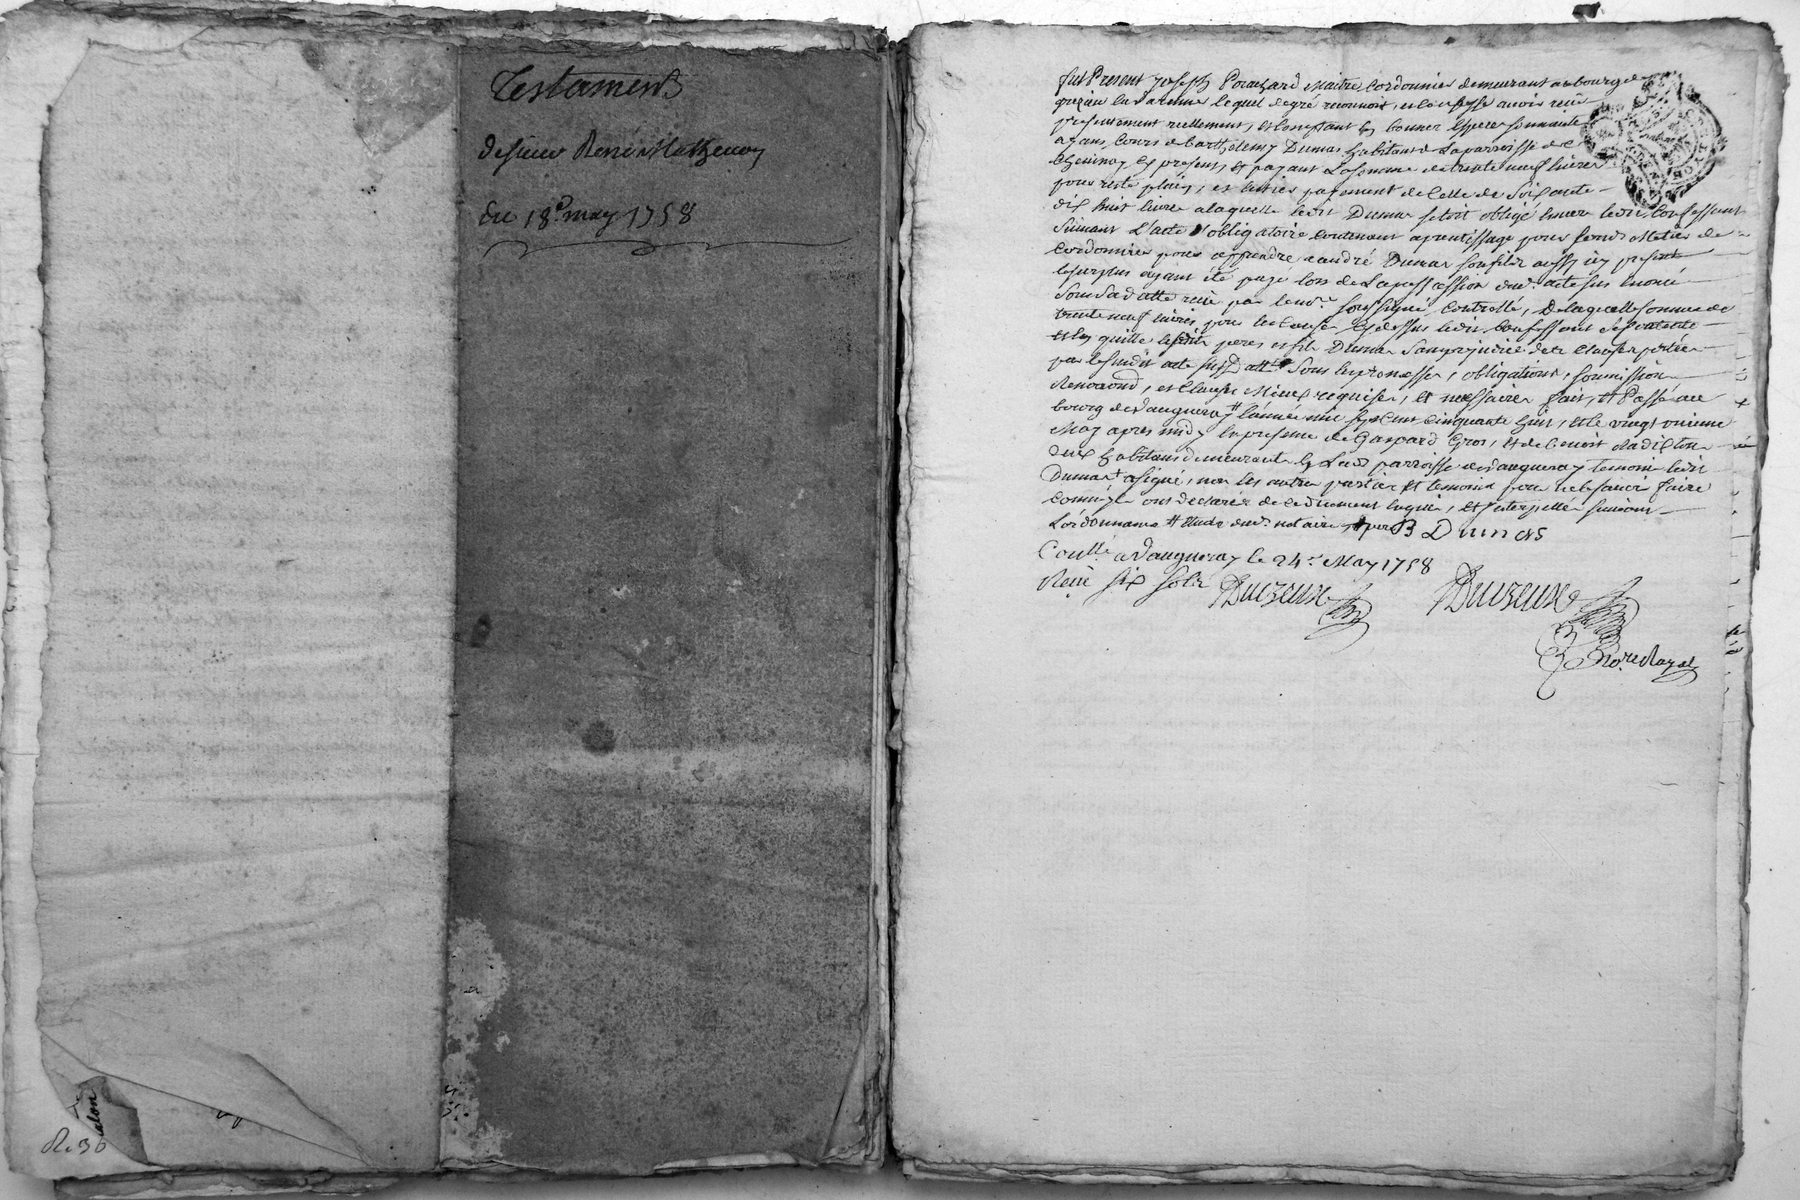 Testament
de sieur René Mathevon
du 18e may 1758
R. 36
alon
fut Present joseph Pouchard Maitre Cordonnier demeurant au bourg de
grezieu la Varenne lequel de gré reconnoit, et confesse avoir reçu
presentement reellement, et comptant en bonnes especes sonnantes
ayans Cours de barthelemy Dumas habitant de la parroisse de
Chevinay cy present, et payant La somme de trente neuf livres
pour reste plein, et entier payement de Celle de Soixante
dix huit livres a laquelle ledit Dumas setoit obligé envers ledit Confessant
suivant L'acte obligatoire contenant aprentissage pour le Metier de
Cordonnier pour apprendre a andré Dumas son fils aussy icy present
le surplus ayant été payé lors de La passation dud. acte sus enoncé
Sous sa datte reçu par le nore soussigné Controllé, De laquelle somme de
trente neuf livres pour les Causes Cy dessus ledit Confessant se contente
et en quitte lesdits peres et fils Dumas sans prejudice des Clauses portées
par le susdit acte susdatté Sous les promesses, obligations, soumissions
Renonciond, et Clauses Mieux requises, et necessaires fait, et Passé au
bourg de Vaugneray L'année mil sept cent cinquante huit, et le vingt unieme
May apres midy en presence de Gaspard Gros, et de benoit
deux habitans demeurants en Lad. parroisse de Vaugneray temoins ledit
Dumas a signé, non les autres parties et temoins pour ne le savoir faire
comm'ils ont declarés de ce duement enquis, et interpellés suivant
L'ordonnance Etude dud. notaire B Dumas
Conllé a Vaugneray le 24e May 1758
Reçu six sols Duvzeux Duvzeux
Nore Royal